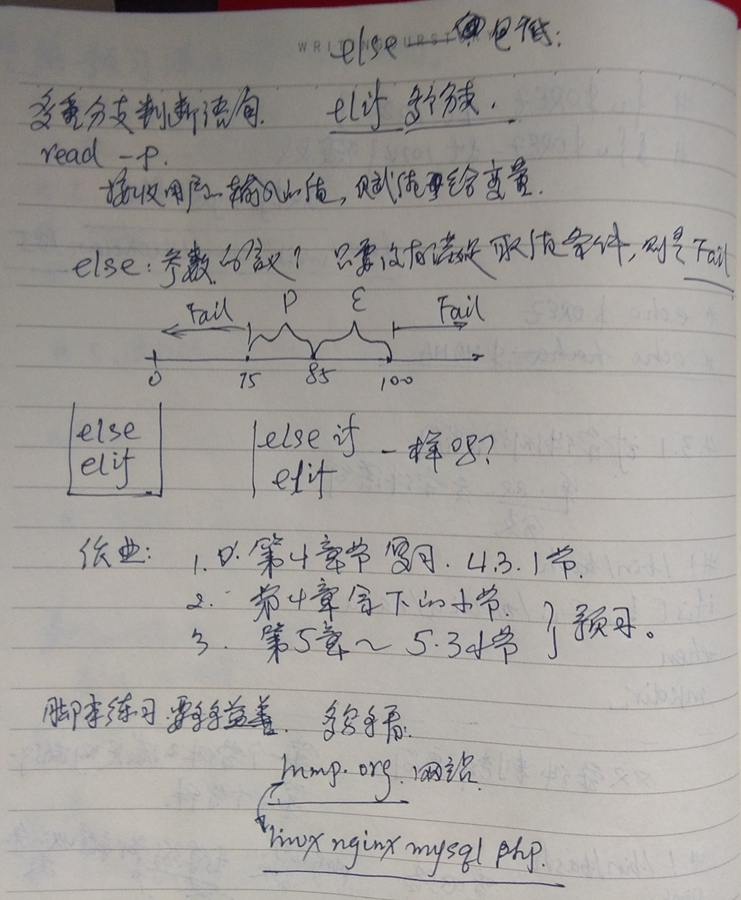 else — 包低:
多重分支判断语句. elif 多分支.
read -p.
接收用户输入的值, 赋值给变量.
else: 参数的议? 只要没有满足取值条件, 则是 Fail
Fail P E Fail
0 75 85 100
else
elif
else if
elif
一样吗?
作业: 1. 第4章节复习. 4.3.1节.
2. 第4章余下的小节.
3. 第5章~5.3小节 } 预习。
脚本练习: 多写多看:
lnmp.org. 网站.
linux nginx mysql php.